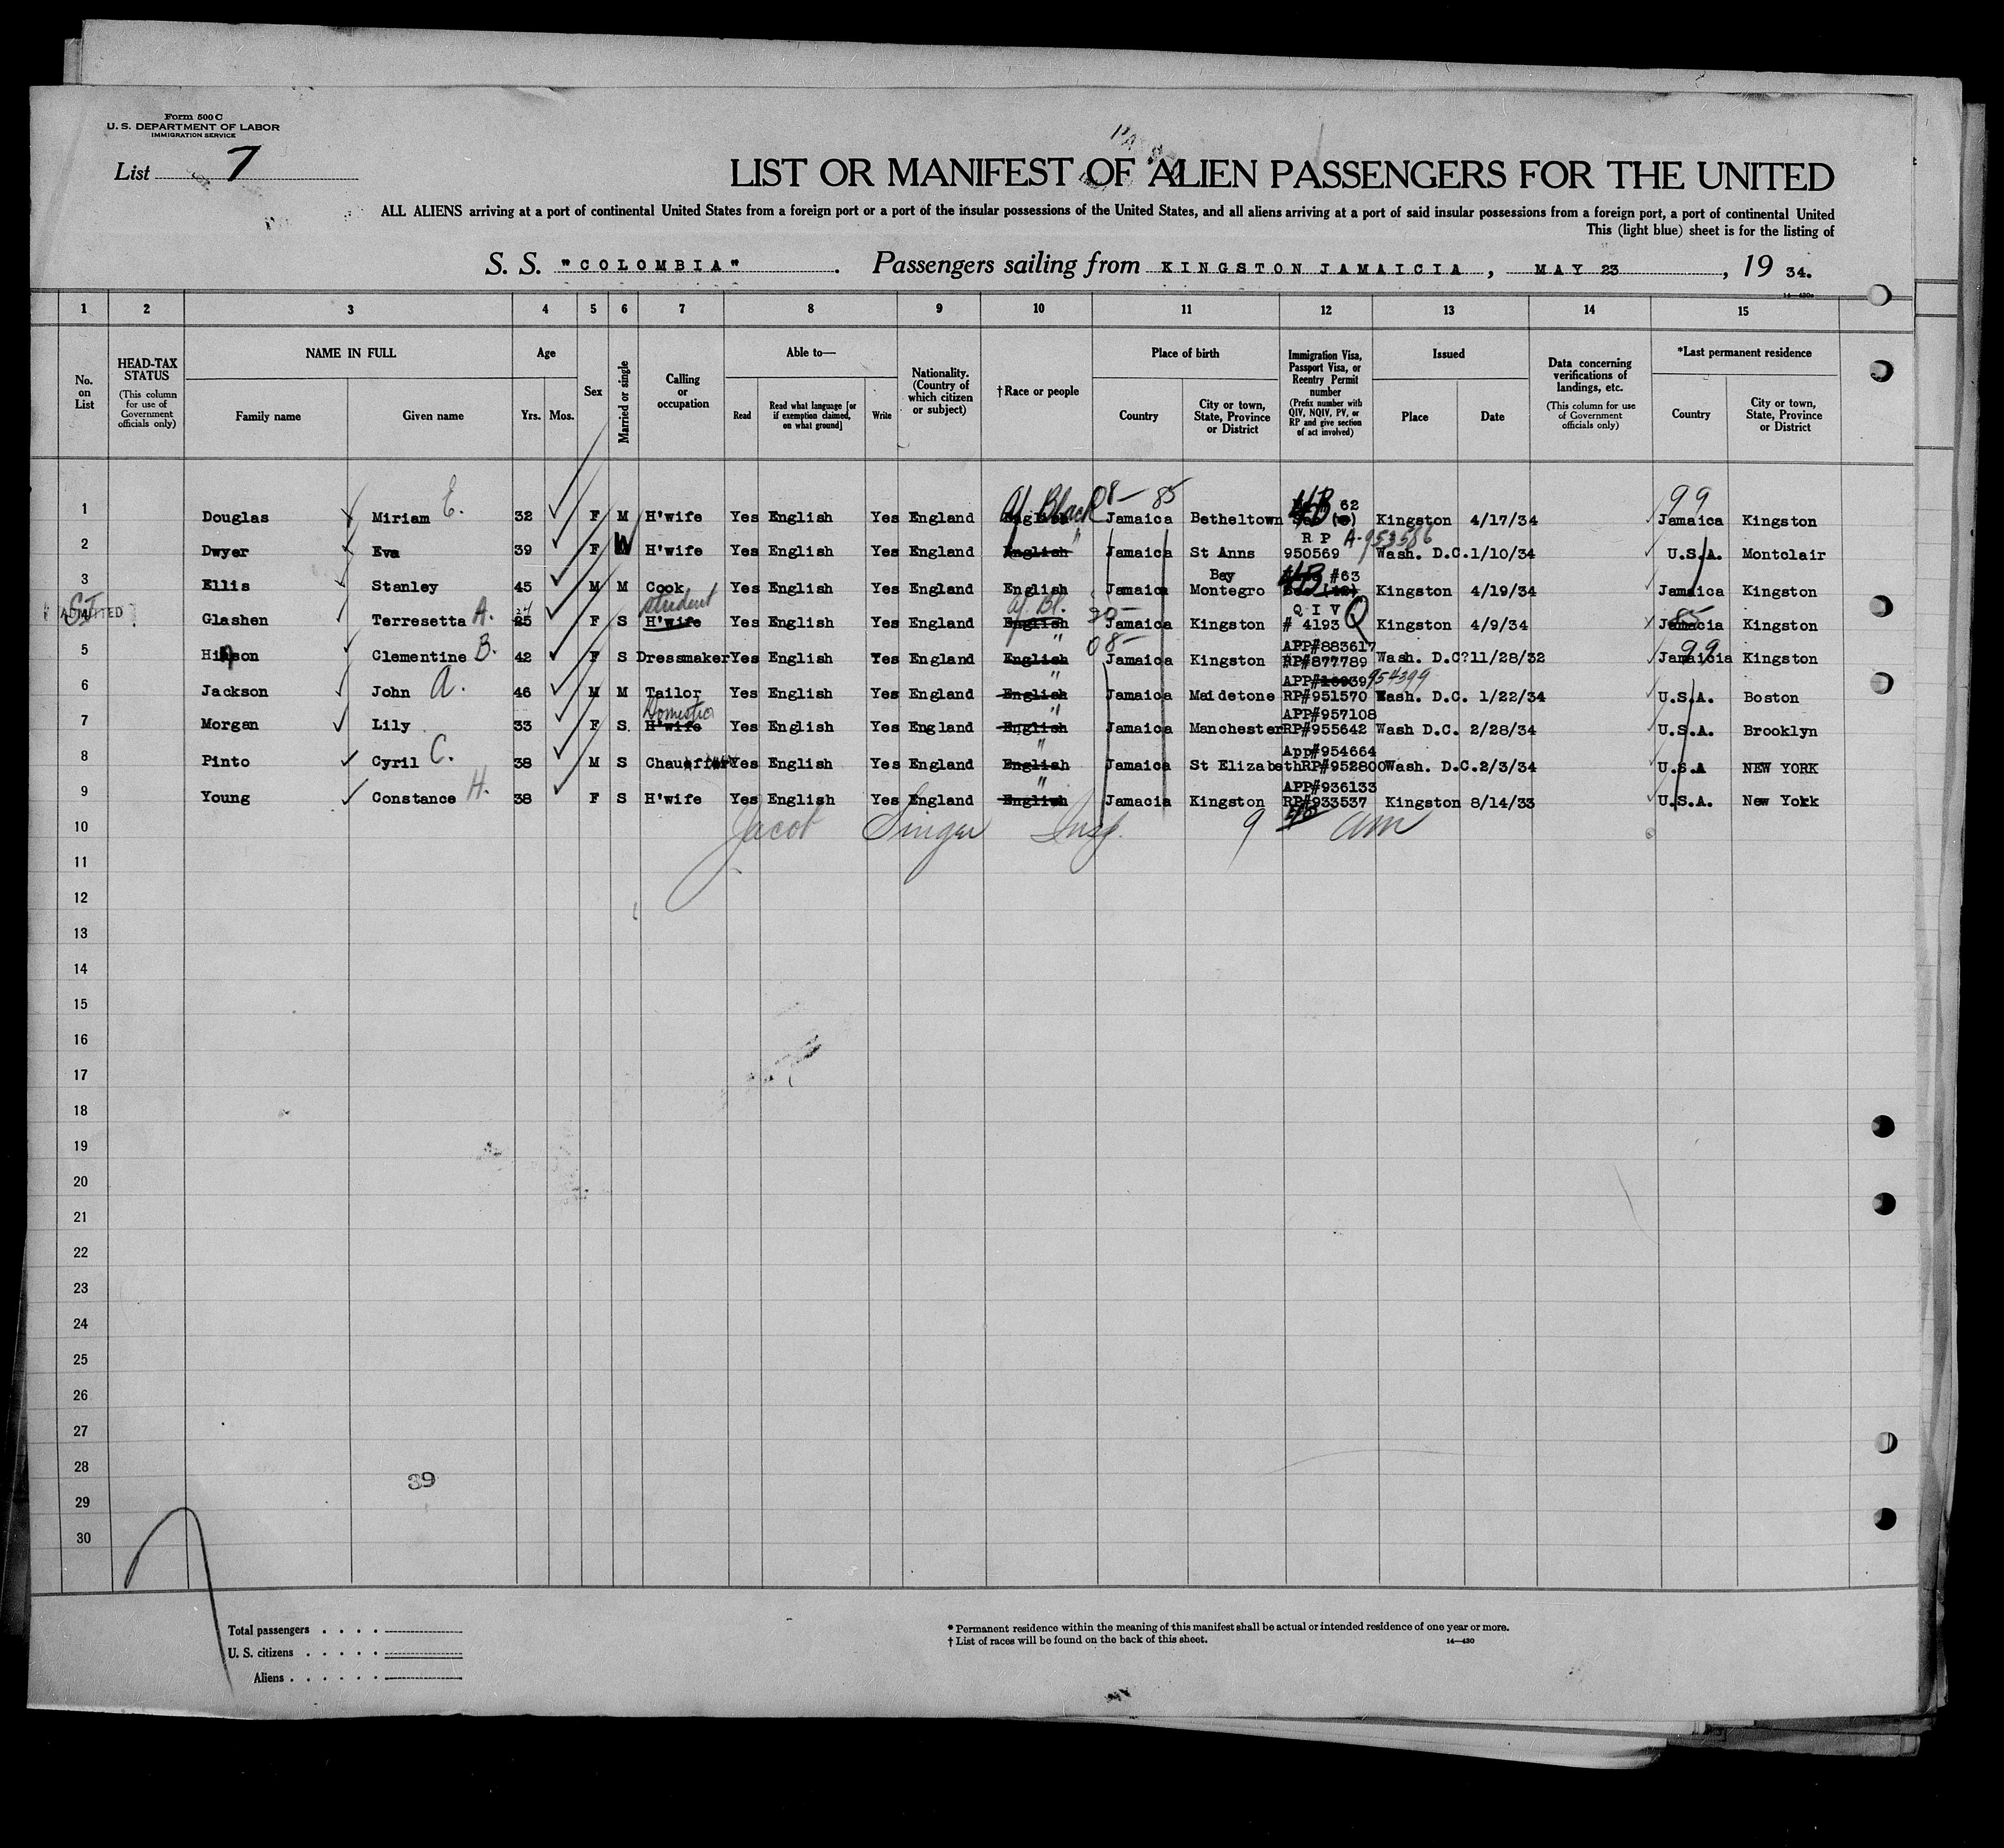 Form 500 C
U. S. DEPARTMENT OF LABOR
IMMIGRATION SERVICE
List 7
LIST OR MANIFEST OF ALIEN PASSENGERS FOR THE UNITED
ALL ALIENS arriving at a port of continental United States from a foreign port or a port of the insular possessions of the United States, and all aliens arriving at a port of said insular possessions from a foreign port, a port of continental United
This (light blue) sheet is for the listing of
S. S. "COLOMBIA". Passengers sailing from KINGSTON JAMAICIA, MAY 23, 19 34.
14—430
1 2 3 4 5 6 7 8 9 10 11 12 13 14 15
No. on List
HEAD-TAX STATUS (This column for use of Government officials only)
NAME IN FULL Family name Given name
Age Yrs. Mos.
Sex
Married or single
Calling or occupation
Able to— Read Read what language [or if exemption claimed, on what ground] Write
Nationality. (Country of which citizen or subject)
† Race or people
Place of birth Country City or town, State, Province or District
Immigration Visa, Passport Visa, or Reentry Permit number (Prefix number with QIV, NQIV, PV, or RP and give section of act involved)
Issued Place Date
Data concerning verifications of landings, etc. (This column for use of Government officials only)
*Last permanent residence Country City or town, State, Province or District
1 Douglas Miriam E. 32 F M H'wife Yes English Yes England Af Black 8- 85 Jamaica Betheltown 4B 62 Kingston 4/17/34 99 Jamaica Kingston
2 Dwyer Eva 39 F W H'wife Yes English Yes England English " Jamaica St Anns R P 950569 A-953586 Wash. D.C. 1/10/34 U.S.A. Montclair
3 Ellis Stanley 45 M M Cook Yes English Yes England English Jamaica Montegro Bay 4B #63 Kingston 4/19/34 Jamaica Kingston
ADMITTED Glashen Terresetta A. 25 F S H'wife student Yes English Yes England English Af. Bl. Jamaica Kingston Q I V # 4193 Q Kingston 4/9/34 Jamacia 85 Kingston
5 Hinson Clementine B. 42 F S Dressmaker Yes English Yes England English " 08- Jamaica Kingston APP#883617 RP#877789 Wash. D.C?11/28/32 Jamaicia 99 Kingston
6 Jackson John A. 46 M M Tailor Yes English Yes England English " Jamaica Maidetone APP#16939 954399 RP#951570 Wash. D.C. 1/22/34 U.S.A. Boston
7 Morgan Lily 33 F S H'wife Domestic Yes English Yes England English " Jamaica Manchester APP#957108 RP#955642 Wash D.C. 2/28/34 U.S.A. Brooklyn
8 Pinto Cyril C. 38 M S Yes English Yes England English " Jamaica St Elizabeth App#954664 RP#952800 Wash. D.C. 2/3/34 U.S.A NEW YORK
9 Young Constance H. 38 F S H'wife Yes English Yes England English " Jamacia Kingston APP#936133 RP#933537 Kingston 8/14/33 U.S.A. New York
10 Jacob Singer Insp. 9
11
12
13
14
15
16
17
18
19
20
21
22
23
24
25
26
27
28
39
29
30
Total passengers
U. S. citizens
Aliens
* Permanent residence within the meaning of this manifest shall be actual or intended residence of one year or more.
† List of races will be found on the back of this sheet.
14—430